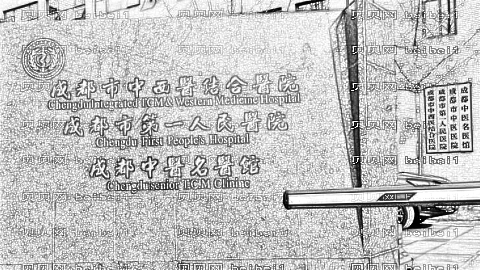 成都市中西醫结合醫院
Chengdu Integrated TCM & Western Medicine Hospital
成都市第一人民醫院
Chengdu First People's Hospital
成都中醫名醫馆
Chengdu senior TCM Clinic
成都中医名医馆
成都市中医医院
成都市第一人民医院
成都市中西医结合医院